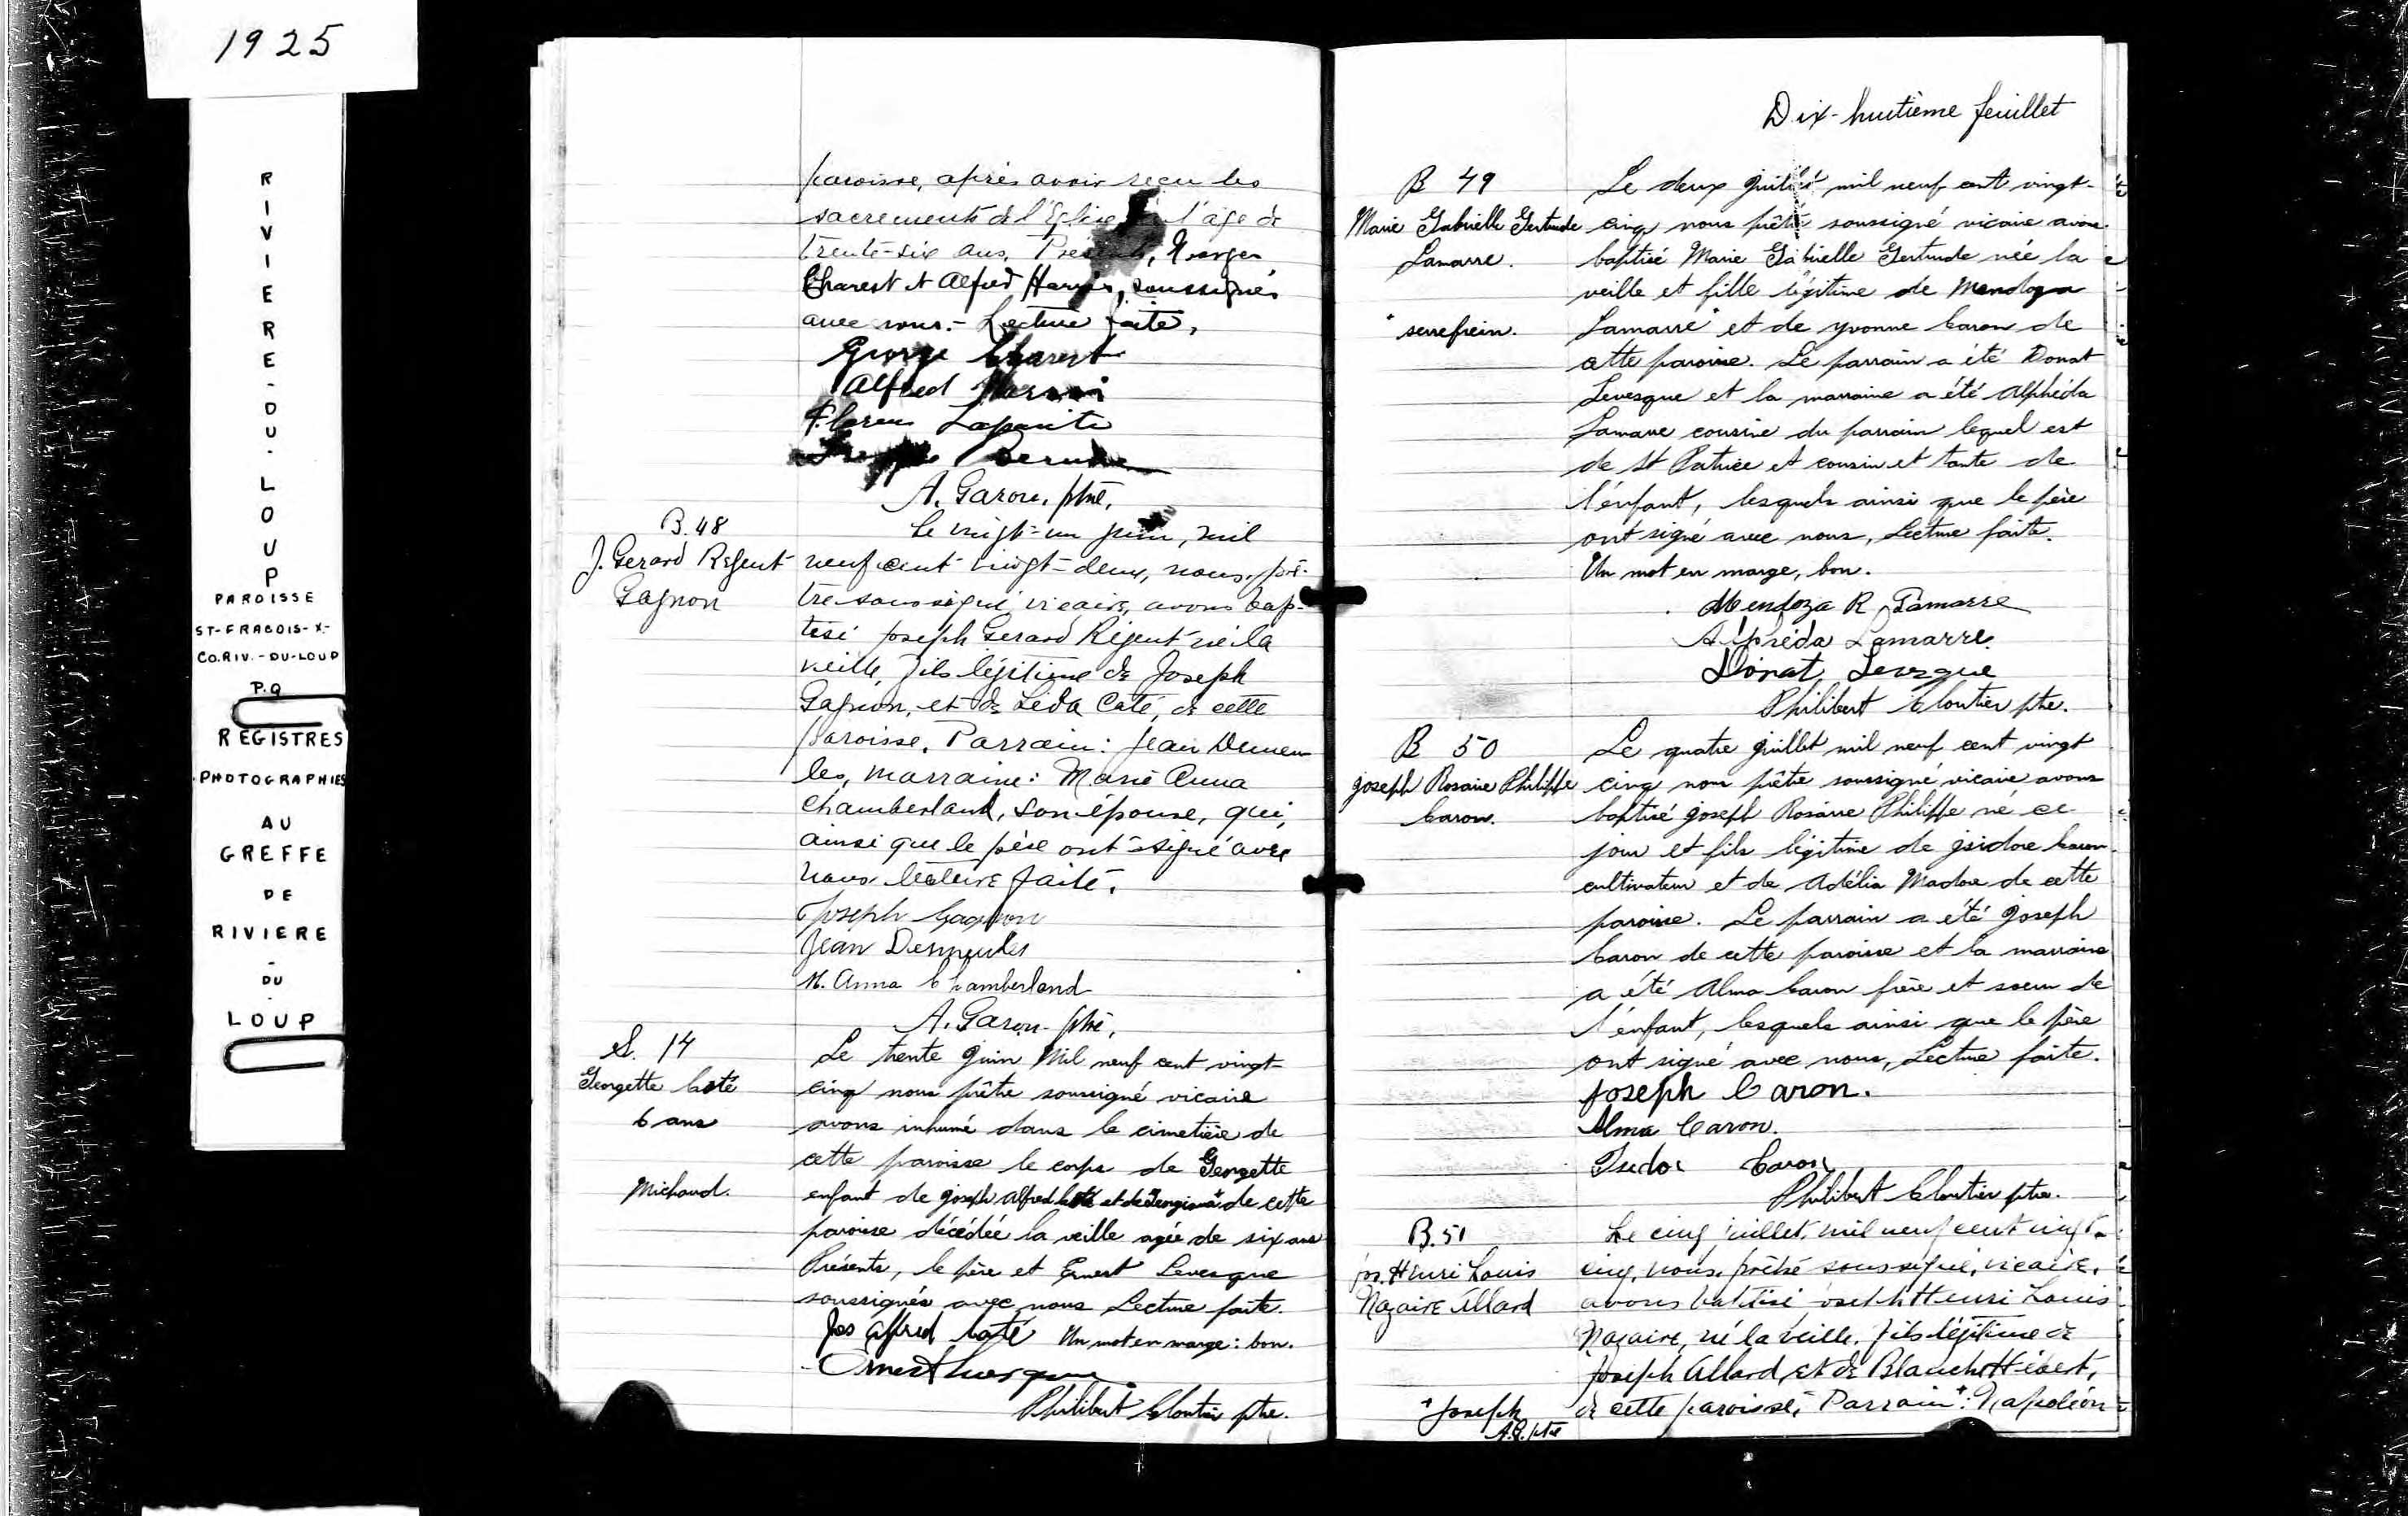 1925
RIVIERE-DU-LOUP
PAROISSE
ST-FRACOIS-X-
CO.RIV.-DU-LOUP
P.Q
REGISTRES
PHOTOGRAPHIES
AU
GREFFE
DE
RIVIERE
-
DU
-
LOUP
paroisse, après avoir reçu les
sacrements de l'Eglise à l'âge de
trente-six ans. Présents, Georges
Charest et Alfred Harris, soussignés
avec nous. - Lecture faite,
George Charest
Alfred
Lapointe
A. Garon, ptre.
B.48
J. Gerard Régent
Gagnon
Le vingt-un juin, mil
neuf cent vingt-deux, nous, prê-
tre soussigné, vicaire, avons bap-
tisé Joseph Gerard Régent né la
veille, fils légitime de Joseph
Gagnon, et de Léda Coté, de cette
paroisse. Parrain: Jean Demeu
les, marraine: Marie Anna
Chamberland, son épouse, qui,
ainsi que le père ont signé avec
nous lecture faite.
Joseph Gagnon
Jean Desmeules
M. Anna Chamberland
A. Garon ptre.
S. 14
Georgette Coté
6 ans
Michaud.
Le trente juin Mil neuf cent vingt-
cinq nous prêtre soussigné vicaire
avons inhumé dans le cimetière de
cette paroisse le corps de Georgette
enfant de joseph Alfred Coté et de Georgiana de cette
paroisse décédée la veille agée de six ans
Présents, le père et Ernest Levesque
soussignés avec nous Lecture faite.
Jos Alfred Coté Un mot en marge: bon.
Ernest Levesque
Philibert Cloutier ptre.
Dix-huitième feuillet
B 49
Marie Gabrielle Gertrude
Lamarre.
" serrefrein.
Le deux juillet mil neuf cent vingt-
cinq nous prêtre soussigné vicaire avons
baptisé Marie Gabrielle Gertrude née la
veille et fille légitime de Mendoza
Lamarre" et de yvonne Caron de
cette paroisse. Le parrain a été Donat
Levesque et la marraine a été Alphéda
Lamarre cousine du parrain lequel est
de St Patrice et cousin et tante de
l'enfant, lesquels ainsi que le père
ont signé avec nous, Lecture faite.
Un mot en marge, bon.
Mendoza R. Lamarre
Alphéda Lamarre.
Donat Levesque
Philibert Cloutier ptre.
B 50
joseph Rosaire Philippe
Caron.
Le quatre juillet mil neuf cent vingt
cinq nous prêtre soussigné vicaire avons
baptisé joseph Rosaire Philippe né ce
jour et fils légitime de jsidore Caron
cultivateur et de Adélia Madore de cette
paroisse. Le parrain a été joseph
Caron de cette paroisse et la marraine
a été Alma Caron frère et soeur de
l'enfant, lesquels ainsi que le père
ont signé avec nous, Lecture faite.
Joseph Caron.
Alma Caron.
Caron
Philibert Cloutier ptre.
B.51
jos. Henri Louis
Nazaire Allard
+ Joseph
A.G. ptre
Le cinq juillet, mil neuf cent vingt-
cinq, nous, prêtre soussigné, vicaire,
avons baptisé joseph Henri Louis
Nazaire, né la veille, fils légitime de
Joseph Allard, et de Blanche Hébert,
de cette paroisse, Parrain+: Napoléon